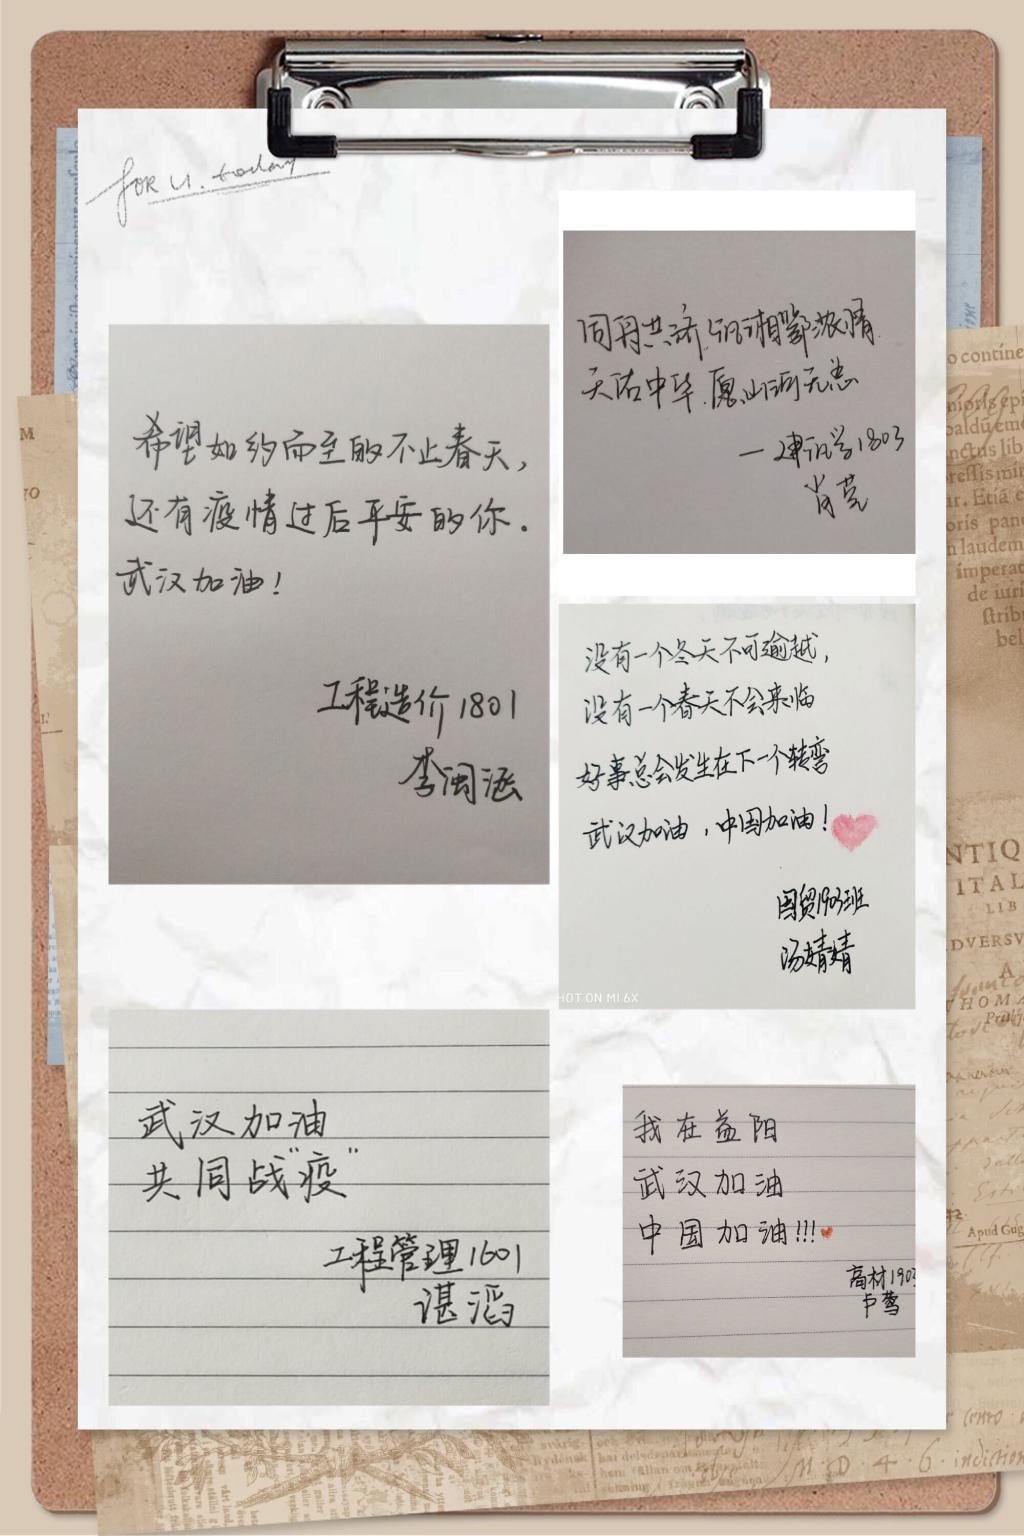 for u. today
同舟共济,饥溺湘鄂浓情
天佑中华,愿山河无恙
一建筑学1803
肖莞
希望如约而至的不止春天,
还有疫情过后平安的你.
武汉加油!
工程造价1801
李闽涵
没有一个冬天不可逾越,
没有一个春天不会来临
好事总会发生在下一个转弯
武汉加油,中国加油!
国贸1903班
汤婧婧
HOT ON MI 6X
武汉加油
共同战"疫"
工程管理1601
谌滔
我在益阳
武汉加油
中国加油!!!
高材1903
卢莺